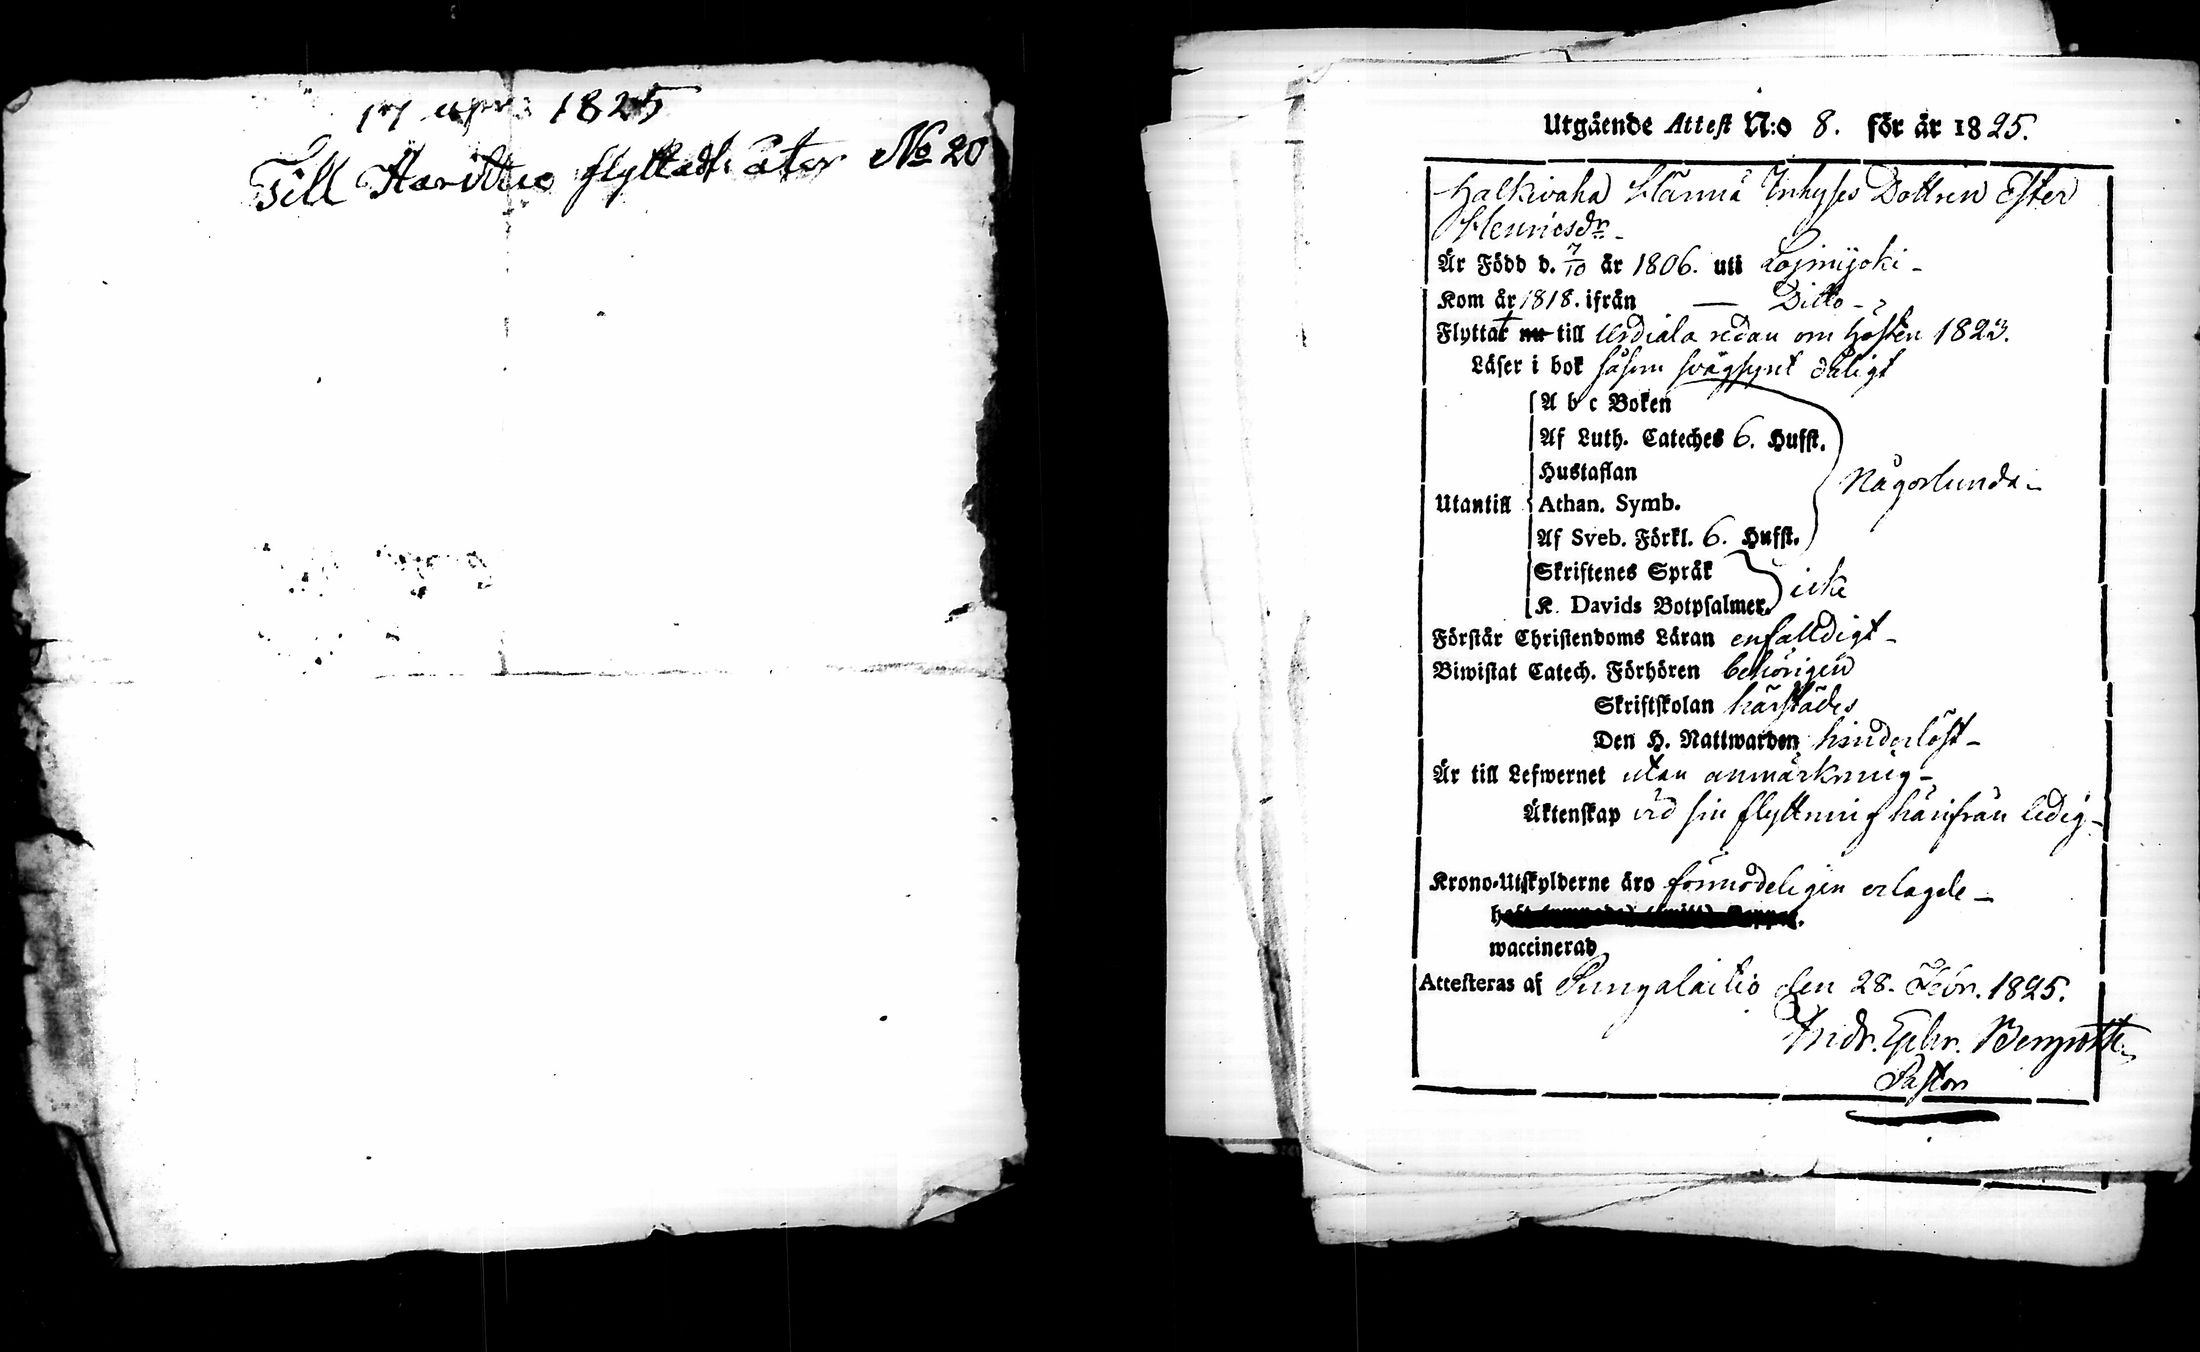 17 apr. 1825
Till Haruttio flyttade åter No 20
Utgående Attest N:o 8. för år 1825.
Halkivaha Hännä Inhyses Dottren Ester
Henricsdr.
Är Född d. 7/10 år 1806. uti Loimijoki -
Kom år 1818. ifrån — Ditto -
Flyttat nu till Urdiala redan om hösten 1823.
Läser i bok såsom svagsynt dåligt
A b c Boken
Af Luth. Cateches 6. Hufst.
Hustaflan
Någorlunda -
Utantill Athan. Symb.
Af Sveb. Förkl. 6. Hufst.
Skriftenes Språk
icke
K. Davids Botpsalmer
Förstår Christendoms Läran enfalldigt -
Biwistat Catech. Förhören behörigen
Skriftskolan härstädes
Den H. Nattwarden hinderlöst -
Är till Lefwernet utan anmärkning -
Äktenskap vid sin flyttning härifrån ledig -
Krono-Utskylderne äro förmodeligen erlagde -
waccinerad
Attesteras af Pungalaitio den 28. Febr. 1825.
Andr. Ephr. Bergrott
Pastor